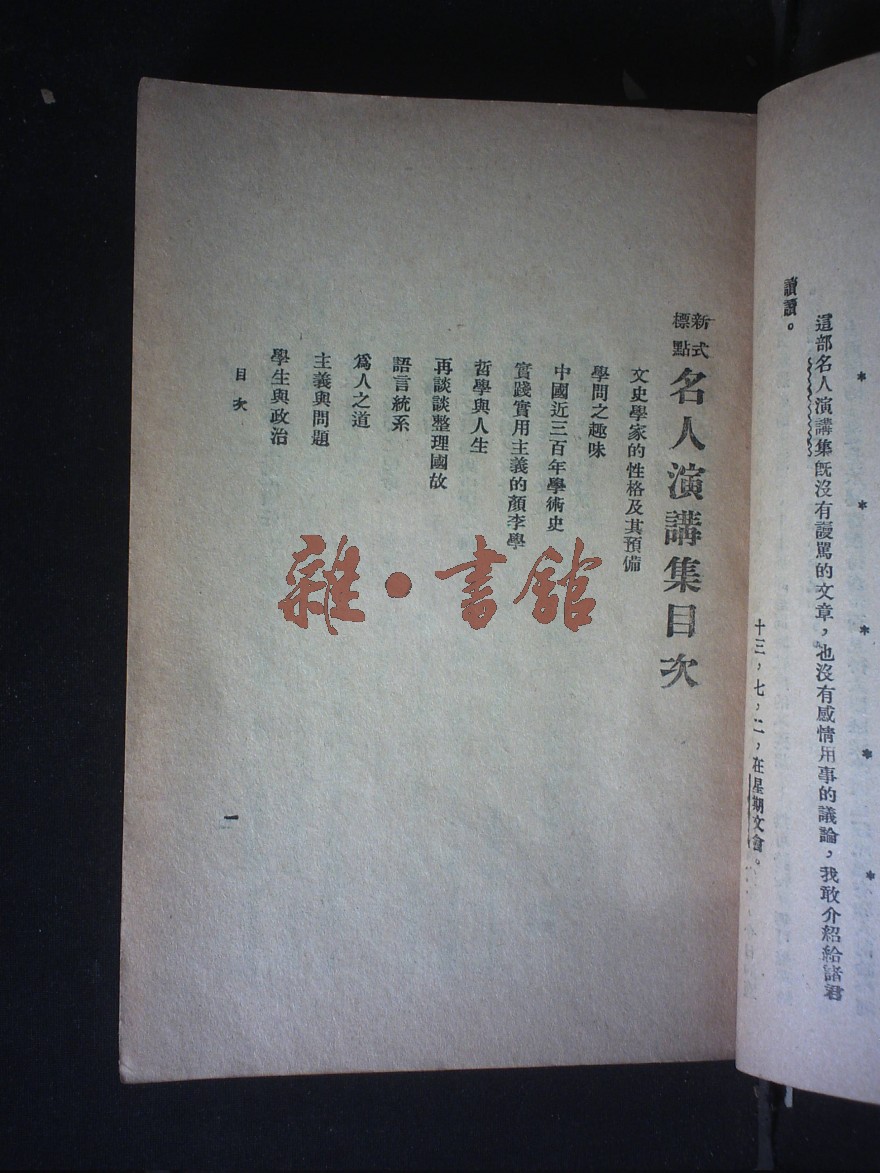 這部名人演講集旣沒有謾駡的文章，也沒有感情用事的議論，我敢介紹給諸君
讀讀。
十三，七，二，在星期文會。
新式標點
名人演講集目次
文史學家的性格及其預備
學問之趣味
中國近三百年學術史
實踐實用主義的顏李學
哲學與人生
再談談整理國故
語言統系
爲人之道
主義與問題
學生與政治
目次
一
雜·書館